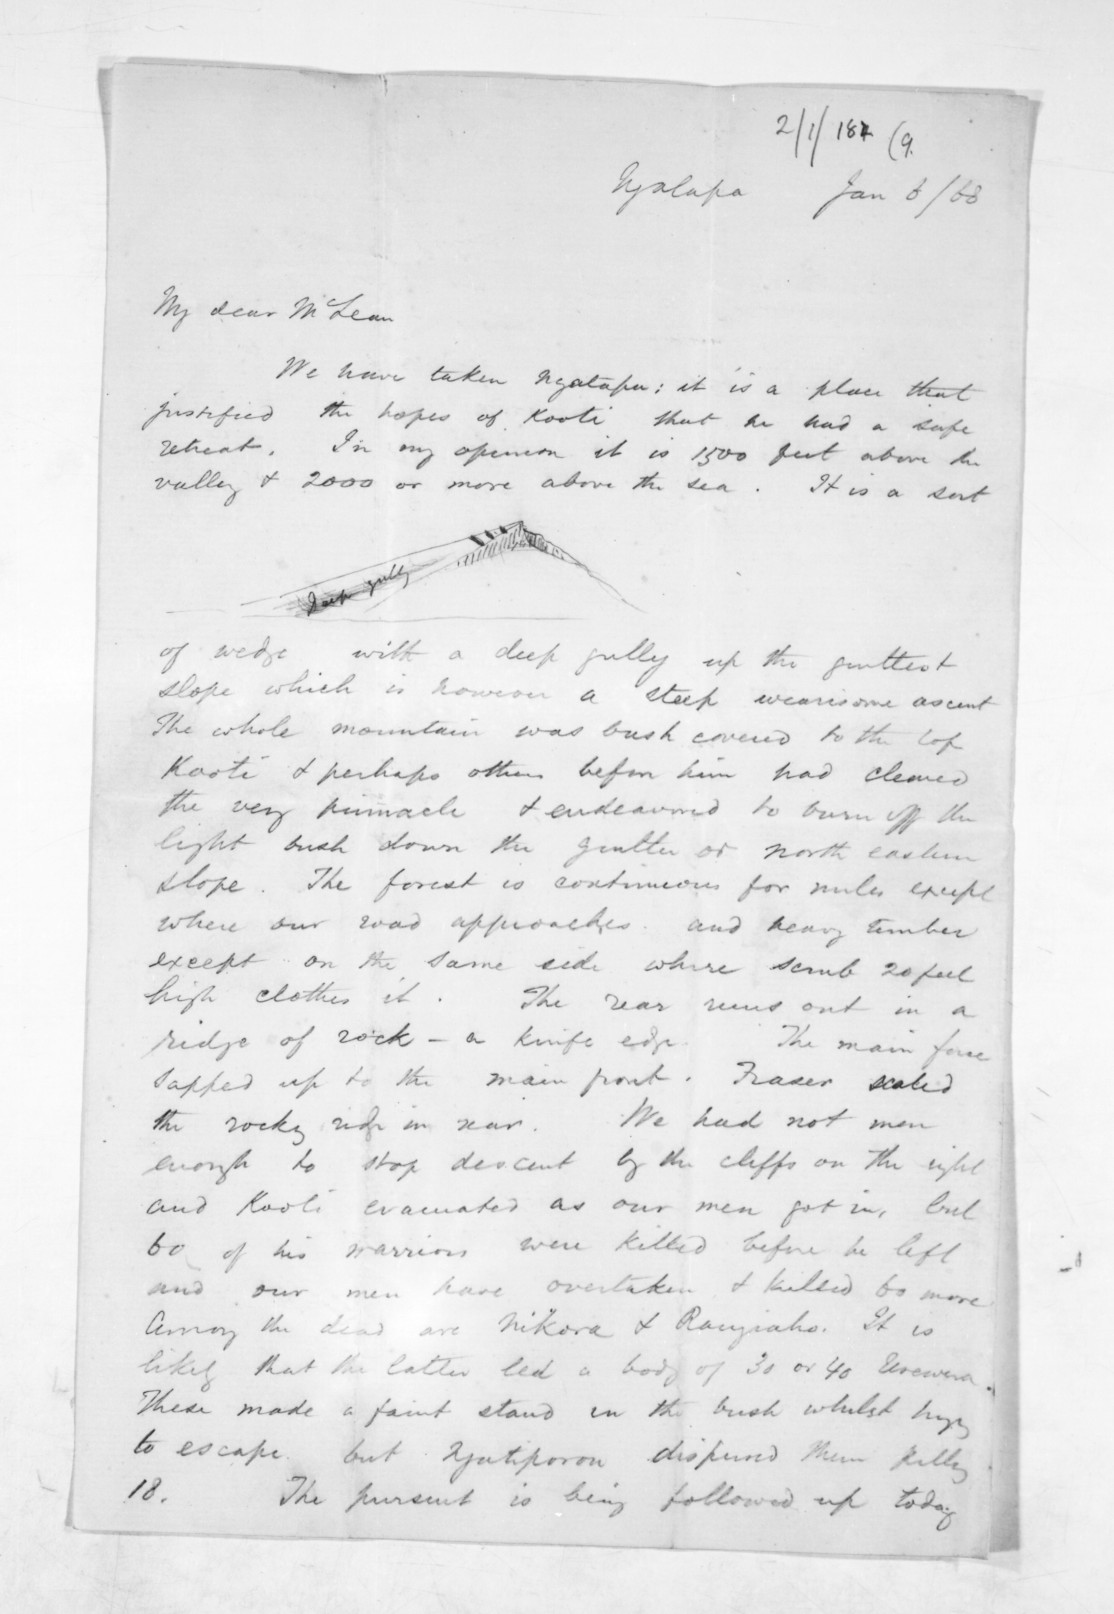 2/1/187 (9.
Ngatapa Jan 6/68
My dear McLean
We have taken Ngatapa; it is a place that
justified the hopes of Kooti that he had a safe
retreat. In my opinion it is 1500 feet above the
valley & 2000 or more above the sea. It is a sort
Deep gully
of wedge with a deep gully up the gentlest
slope which is however a steep wearisome ascent
The whole mountain was bush covered to the top
Kooti & perhaps others before him had cleared
the very pinnacle & endeavored to burn off the
light bush down the gentler or north eastern
slope. The forest is continuous for miles except
where our road approaches and heavy timber
except on the same side where scrub 20 feet
high clothes it. The rear runs out in a
ridge of rock - a knife edge. The main force
sapped up to the main front. Fraser scaled
the rocky ridge in rear. We had not men
enough to stop descent by the cliffs on the right
and Kooti evacuated as our men got in, but
60 of his warriors were killed before he left
and our men have overtaken & killed 60 more
Among the dead are Nikora & Rangiaho. It is
likely that the latter led a body of 30 or 40 Urewera.
These made a faint stand in the bush whilst trying
to escape but Ngatiporou dispersed them killing
18. The pursuit is being followed up today